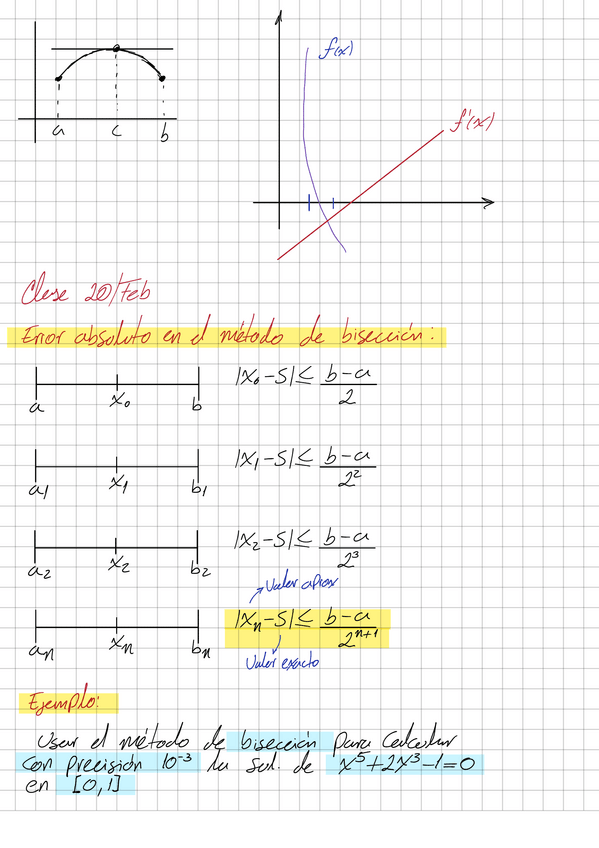 f(x)
f'(x)
a c b
Clase 20/Feb
Error absoluto en el método de bisección:
a x₀ b |x₀-S| ≤ (b-a)/2
a₁ x₁ b₁ |x₁-S| ≤ (b-a)/2²
a₂ x₂ b₂ |x₂-S| ≤ (b-a)/2³
Valor aprox
aₙ xₙ bₙ |xₙ-S| ≤ (b-a)/2ⁿ⁺¹
Valor exacto
Ejemplo:
Usar el método de bisección para calcular
con precisión 10⁻³ la sol. de x⁵+2x³-1=0
en [0,1]